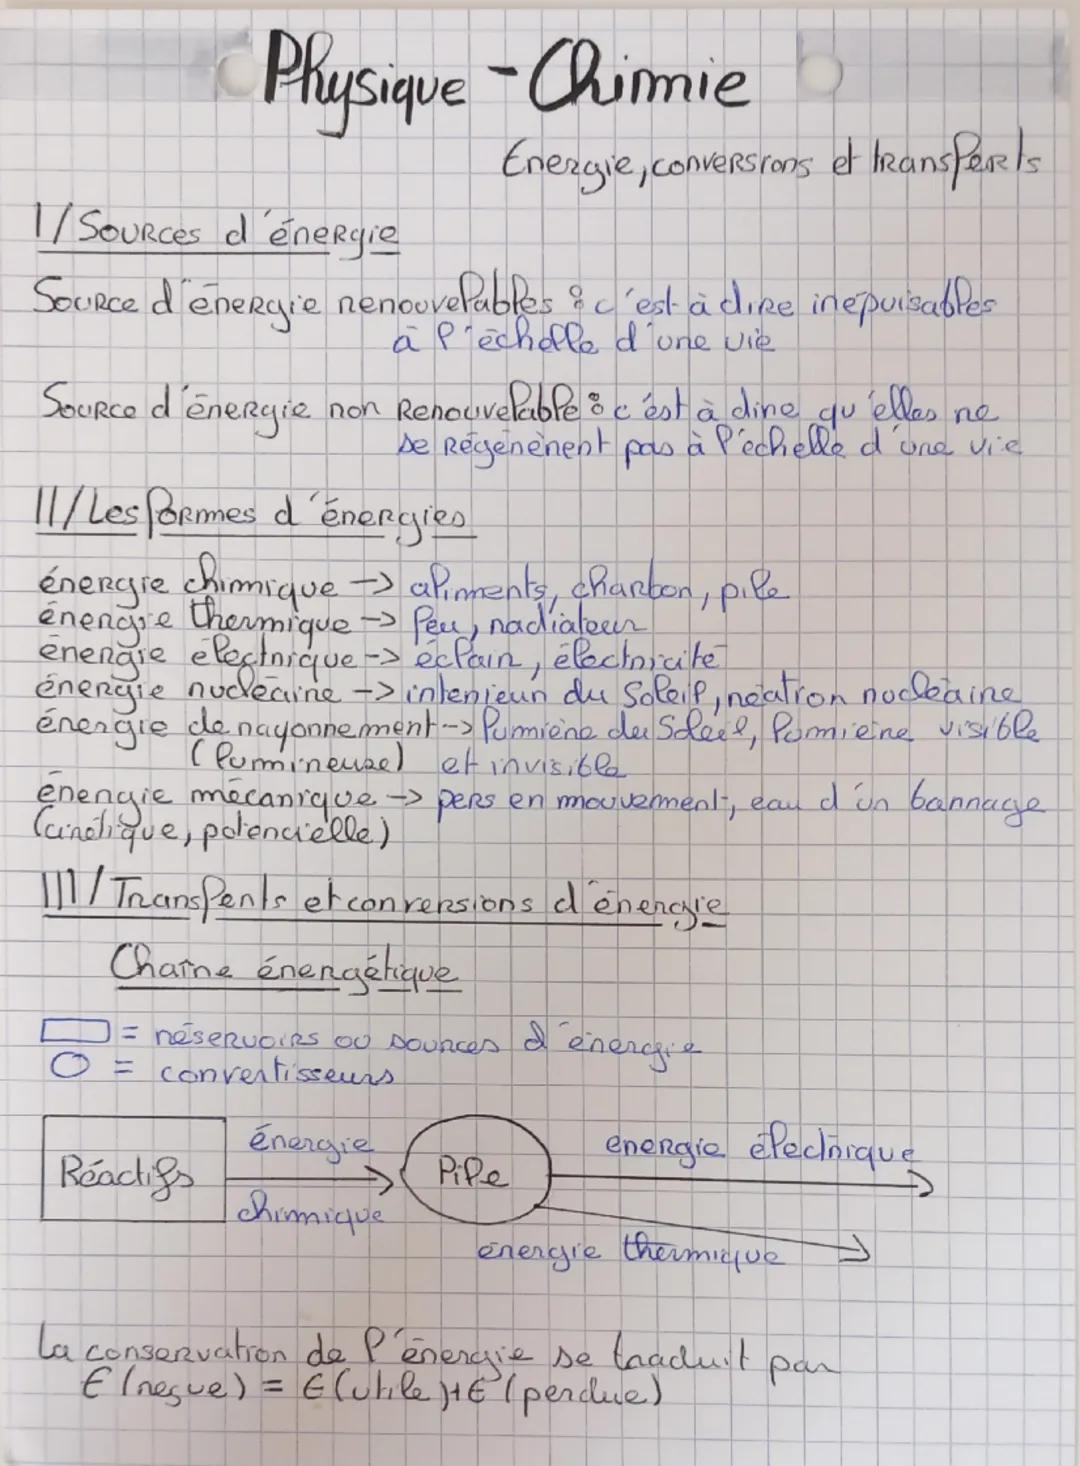 Physique - Chimie
Energie, conversions et transferts
I/ Sources d'énergie
Source d'énergie renouvelables : c'est à dire inépuisables
à l'échelle d'une vie
Source d'énergie non Renouvelable : c'est à dire qu'elles ne
se régénèrent pas à l'échelle d'une vie
II/ Les formes d'énergies
énergie chimique -> aliments, charbon, pile
énergie thermique -> feu, radiateur
énergie électrique -> éclair, électricité
énergie nucléaire -> interieur du Soleil, réation nucléaire
énergie de rayonnement -> lumière du Soleil, lumière visible
(lumineuse) et invisible
énergie mécanique -> pers en mouvement, eau d'un barrage
(cinétique, potencielle)
III/ Transferts et conversions d'énergie
Chaîne énergétique
= réservoirs ou sources d'énergie
= convertisseurs
Réactifs énergie chimique Pile energie électrique
énergie thermique
La conservation de l'énergie se traduit par
E (reçue) = E (utile) + E (perdue)